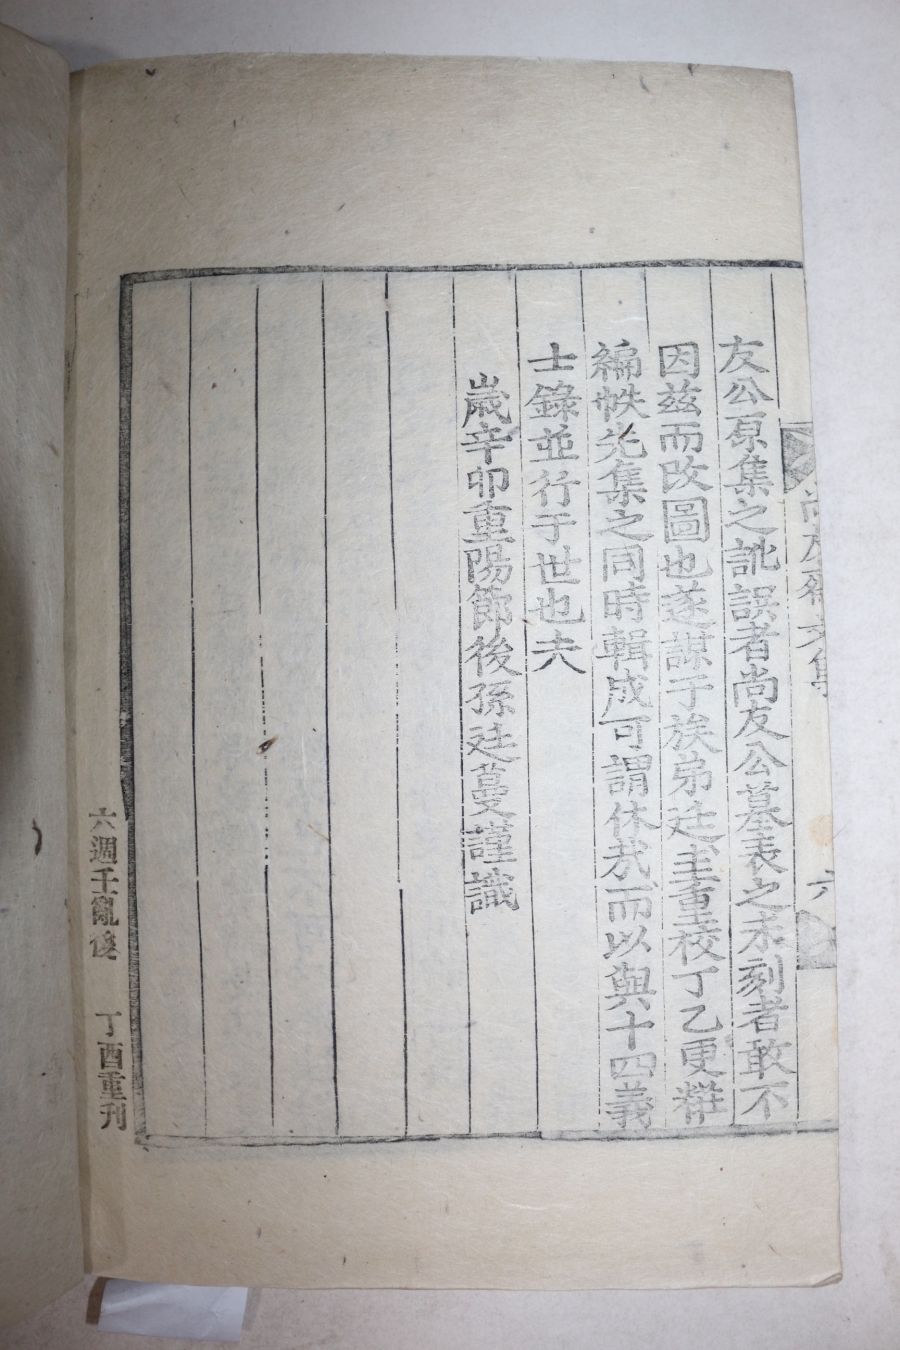 尚友齋文集
六
友公原集之訛誤者尚友公墓表之未刻者敢不
因兹而改圖也遂謀于族弟廷主重校丁乙更粧
編帙先集之同時輯成可謂休哉而以與十四義
士錄並行于世也夫
歲辛卯重陽節後孫廷蔓謹識
六週壬亂後 丁酉重刊